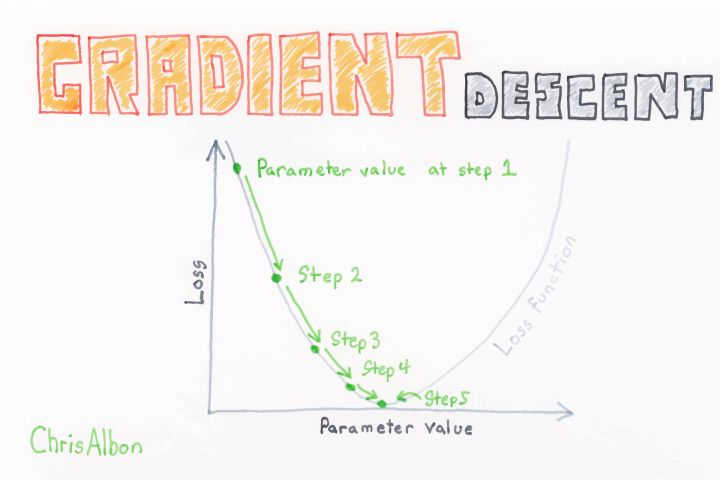 GRADIENT DESCENT
Parameter value at step 1
Step 2
Step 3
Step 4
Step 5
Loss
Loss Function
Parameter Value
Chris Albon